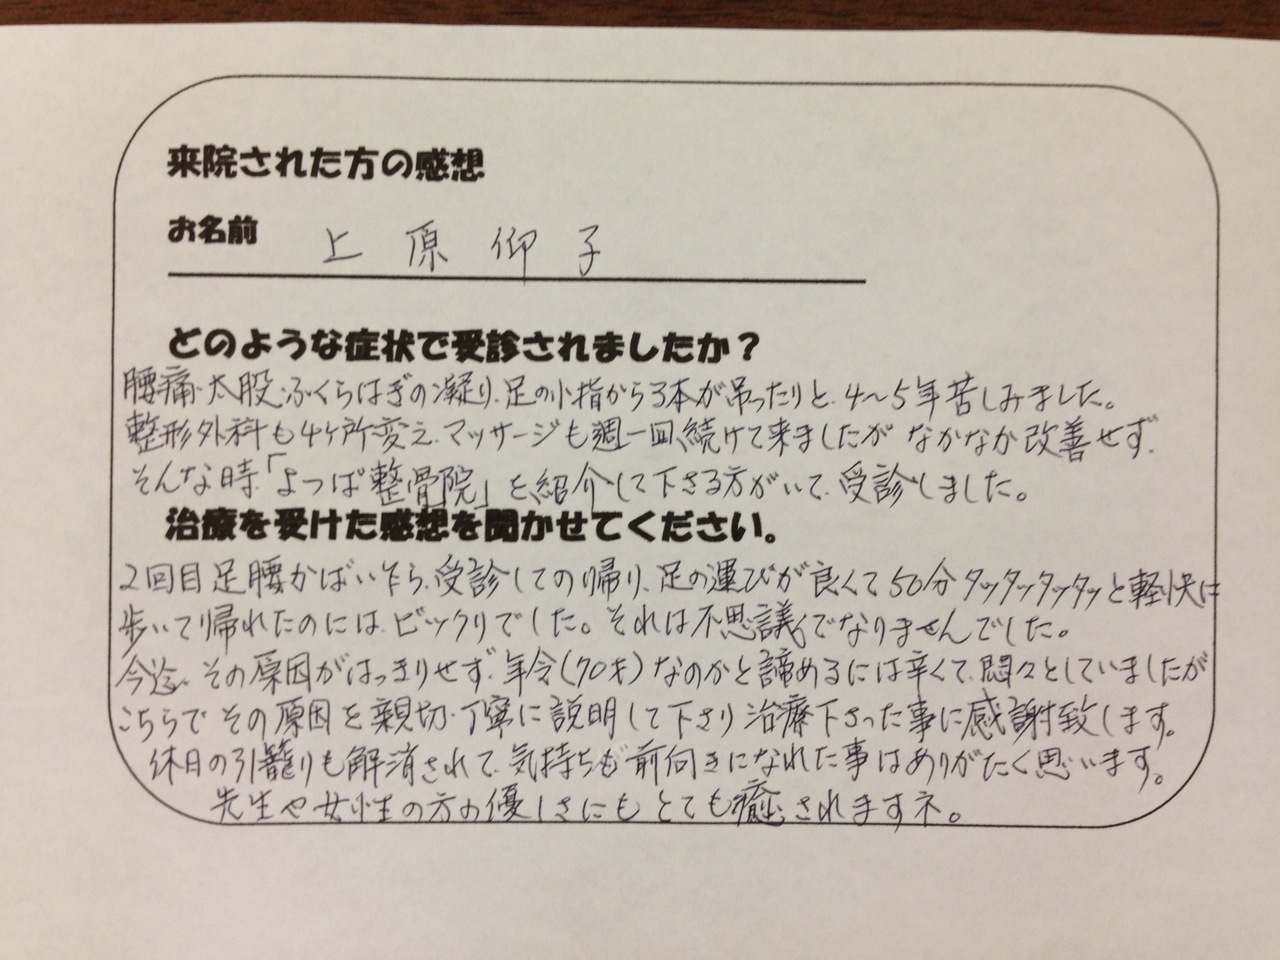 来院された方の感想
お名前 上原仰子
どのような症状で受診されましたか？
腰痛・太股・ふくらはぎの凝り、足の小指から3本が吊ったりと、4〜5年苦しみました。
整形外科も4ヶ所変え、マッサージも週一回、続けて来ましたが なかなか改善せず、
そんな時「よつば整骨院」を紹介して下さる方がいて、受診しました。
治療を受けた感想を聞かせてください。
2回目 足腰かばいながら、受診しての帰り、足の運びが良くて50分 タッタッタッタッと軽快に
歩いて帰れたのには、ビックリでした。それは不思議でなりませんでした。
今迄、その原因がはっきりせず、年令(70才)なのかと諦めるには辛くて、悶々としていましたが
こちらで その原因を親切・丁寧に説明して下さり 治療下さった事に感謝致します。
休日の引籠りも解消されて、気持ちも前向きになれた事はありがたく思います。
先生や女性の方の優しさにも とても癒されますネ。